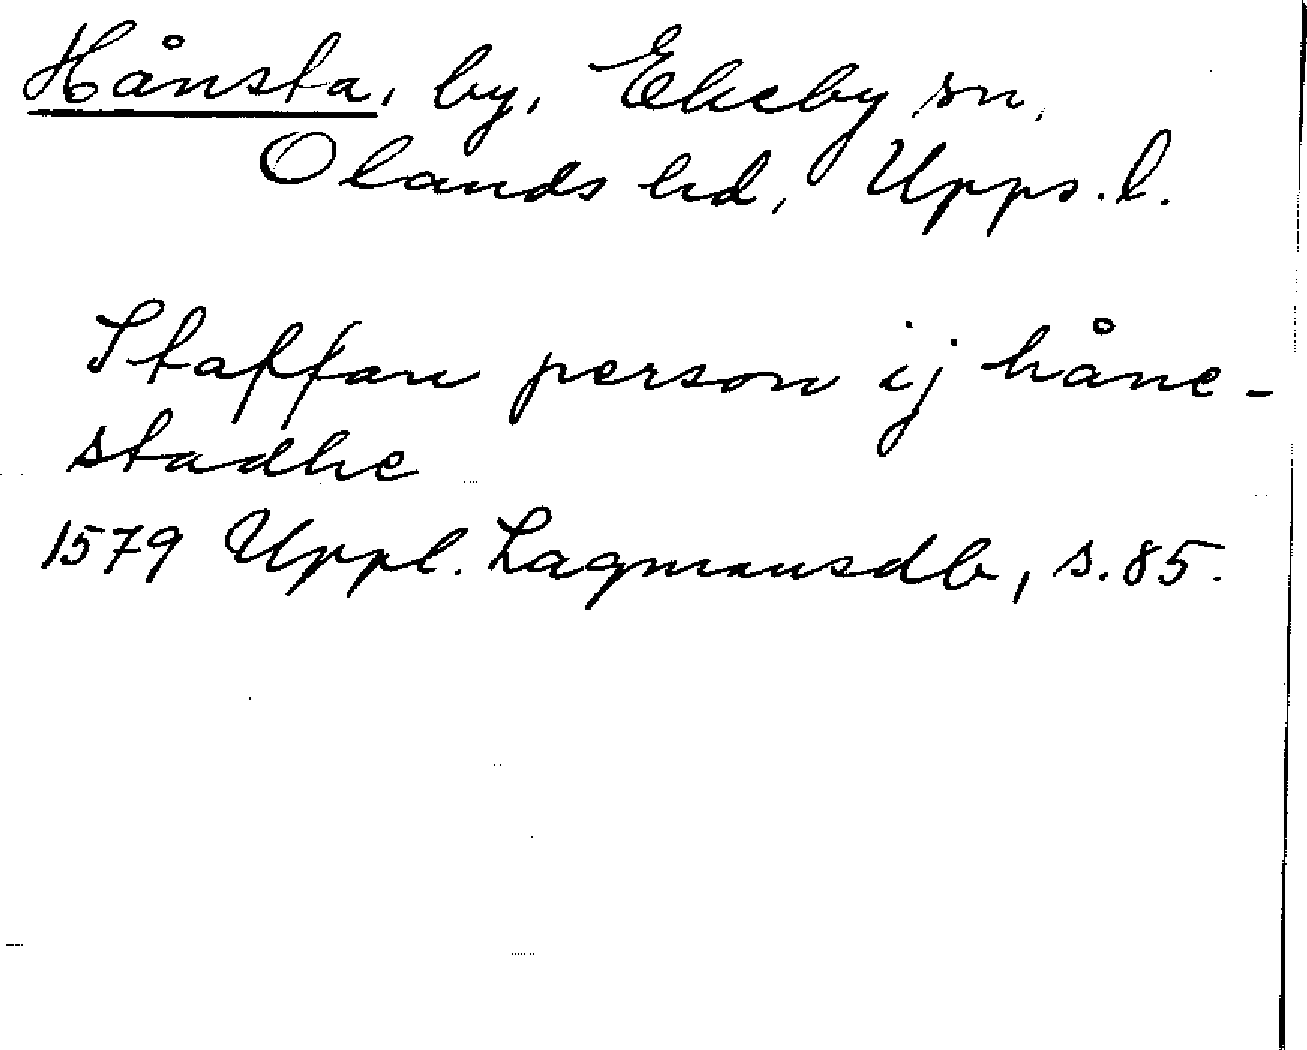 Hånsta, by, Ekeby sn,
Olands hd, Upps. l.
Staffan person ij håne-
stadhe
1579 Uppl. Lagmansdb, s. 85.